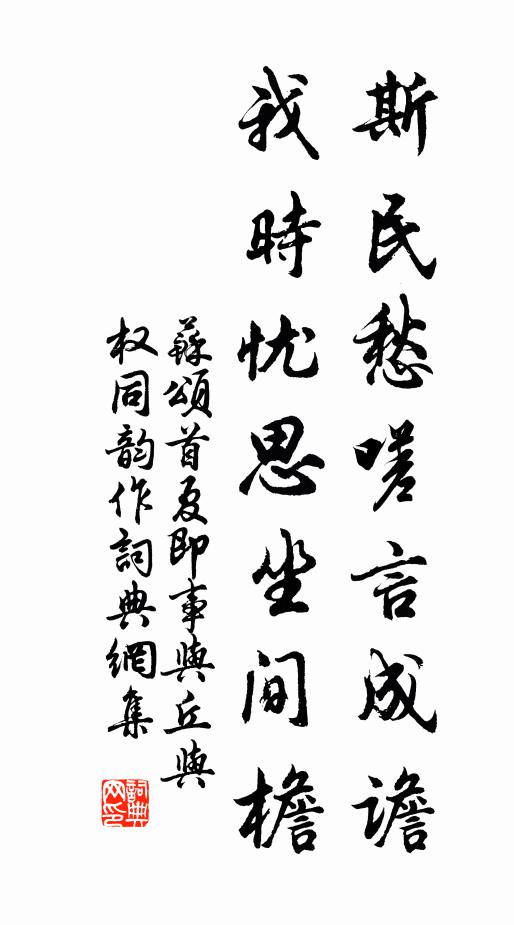 斯民愁嗟言成谵
我時忧思坐间檐
蘇頌首夏即事與丘與
权同韵作詞典網集
詞典网印